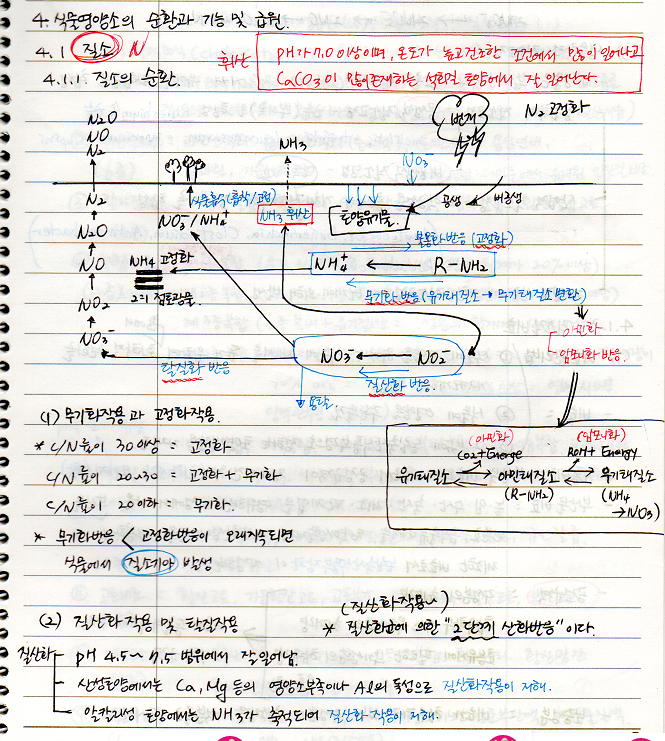 4. 식물영양소의 순환과 기능 및 급원.
4.1 질소 N
4.1.1 질소의 순환.
휘산
pH가 7.0 이상이며, 온도가 높고 건조한 조건에서 많이 일어나고
CaCO3 이 많이 존재하는 석회질 토양에서 잘 일어난다.
N2O
NO
N2
NH3
번개
N2 고정화
NO3-
식물흡수(흡착/고정)
NO3-/NH4+
NH3 휘산
토양유기물.
공생
비공생
N2
N2O
NO
NO2
NO3-
NH4 고정화
2=1 점토광물
부동화반응 (고정화)
NH4+ ← R-NH2
무기화 반응 (유기태질소 → 무기태질소 변환)
아민화
암모니화 반응
NO3- ← NO2-
탈질화 반응
질산화 반응.
용탈
(1) 무기화작용과 고정화작용.
* C/N율이 30이상 = 고정화
C/N율이 20~30 = 고정화 + 무기화
C/N율이 20이하 = 무기화.
* 무기화반응 < 고정화반응이 오래지속되면
식물에서 질소기아 발생
(아민화) (암모니화)
CO2+Energe ROH+Energy
유기태질소 아민태질소 무기태질소
(R-NH2) (NH4
→NO3)
(2) 질산화작용 및 탈질작용
(질산화작용)
* 질산화균에 의한 "2단계 산화반응"이다.
질산화
pH 4.5~7.5 범위에서 잘일어남.
산성토양에서는 Ca, Mg 등의 영양소부족이나 Al의 독성으로 질산화작용이 저해.
알칼리성 토양에서는 NH3가 축적되어 질산화 작용이 저해.